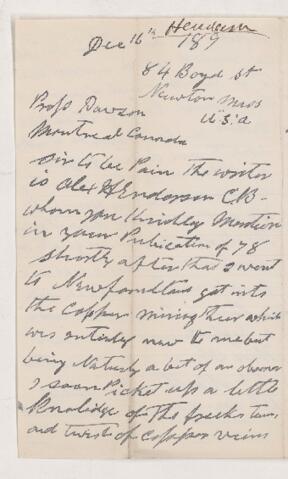 Henderson
Dec 16th 189
84 Boyd st
Newton Mass
U.S.A
Profs Dawson
Montreal Canada
Sir to be Pain the writer
is Alex Henderson C.B-
whom you Kindley Mention
in your Publication of 78
Shortly after that I went
to Newfoundland got into
the Copper mining there which
was entirely new to me but
being Naturly a bit of an observer
I soon Picket up a little
Knolidge of the freeks turns
and twists of copper veins